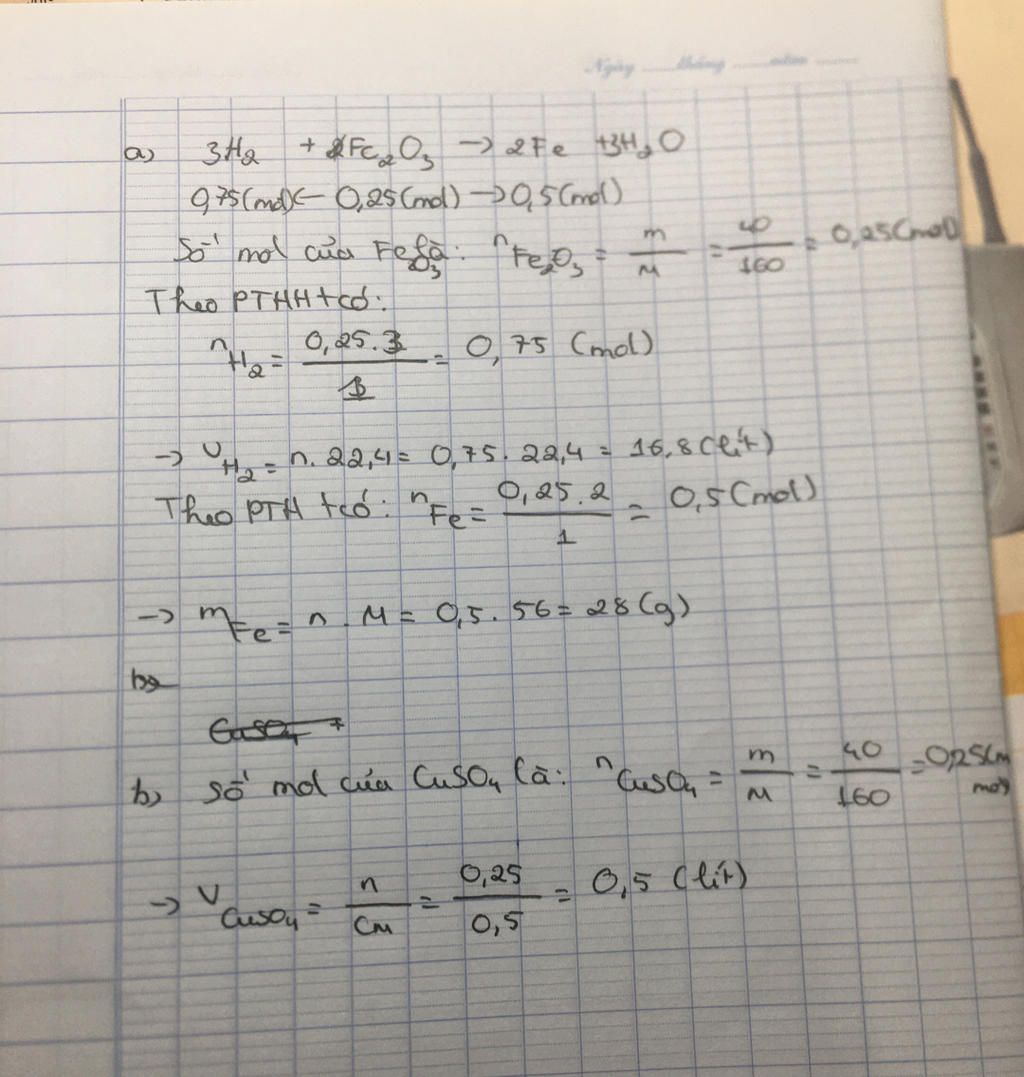 Ngày ........ tháng ........ năm ........
a) 3H₂ + Fe₂O₃ → 2Fe + 3H₂O
0,75(mol) ← 0,25(mol) → 0,5(mol)
Số mol của Fe₂O₃ là: nFe₂O₃ = m/M = 40/160 = 0,25(mol)
Theo PTHH tcó:
nH₂ = 0,25.3/1 = 0,75 (mol)
→ VH₂ = n. 22,4 = 0,75. 22,4 = 16,8 (lít)
Theo PTH tcó: nFe = 0,25.2/1 = 0,5 (mol)
→ mFe = n . M = 0,5. 56 = 28 (g)
b)
CuSO₄ +
b) Số mol của CuSO₄ là: nCuSO₄ = m/M = 40/160 = 0,25(m
mol)
→ VCuSO₄ = n/CM = 0,25/0,5 = 0,5 (lít)